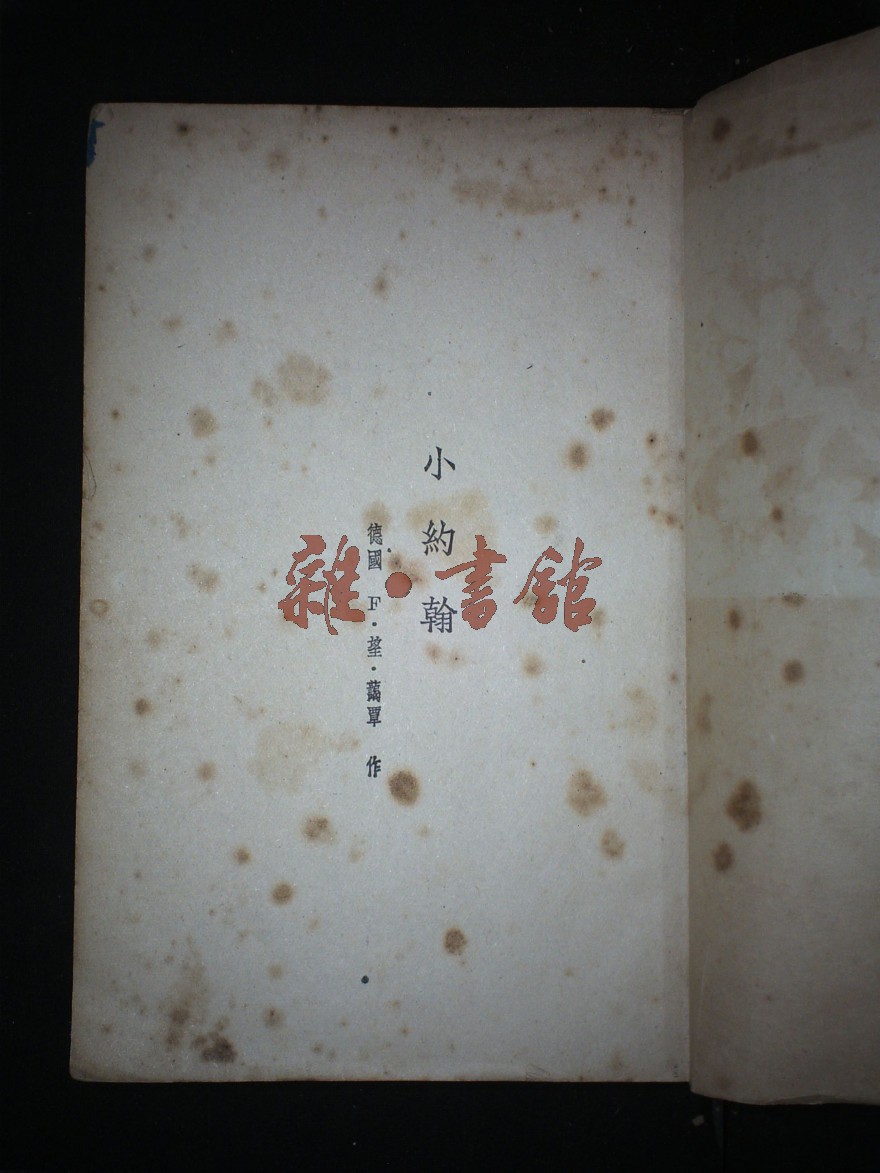 小約翰
德國 F·望·藹覃 作
雜·書館